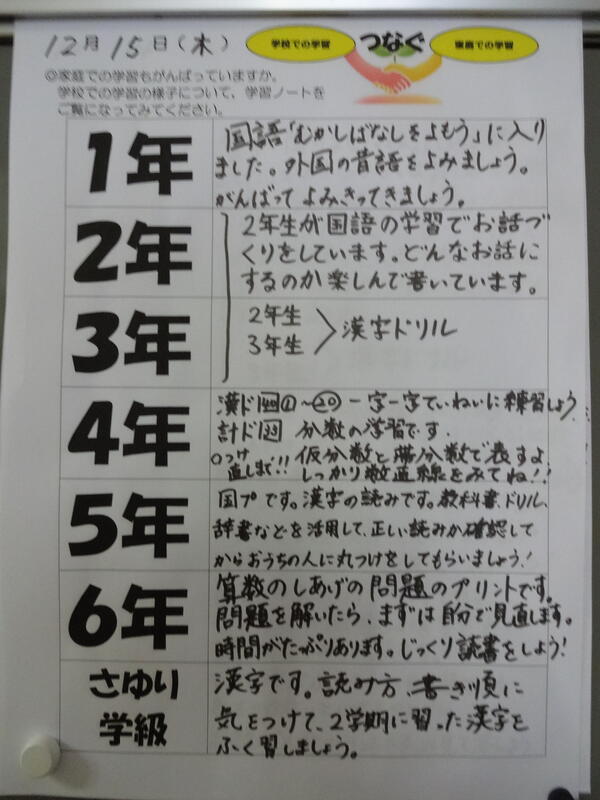 12月15日(木)
学校での学習 つなぐ 家庭での学習
◎家庭での学習もがんばっていますか。
学校での学習の様子について、学習ノートを
ご覧になってみてください。
1年
国語「むかしばなしをよもう」に入り
ました。外国の昔話をよみましょう。
がんばって よみきってきましょう。
2年
2年生が国語の学習でお話づ
くりをしています。どんなお話に
するのか楽しんで書いています。
3年
2年生
3年生 > 漢字ドリル
4年
漢ド40①~⑳ 一字一字ていねいに練習しよう
計ド33 分数の学習です。
○つけ 仮分数と帯分数で表すよ
直しまで!! しっかり数直線をみてね!!
5年
国プです。漢字の読みです。教科書、ドリル、
辞書などを活用して、正しい読みか確認して
からおうちの人に丸つけをしてもらいましょう!
6年
算数のしあげの問題のプリントです。
問題を解いたら、まずは自分で見直します。
時間がたっぷりあります。じっくり読書をしよう!
さゆり
学級
漢字です。読み方、書き順に
気をつけて、2学期に習った漢字を
ふく習しましょう。